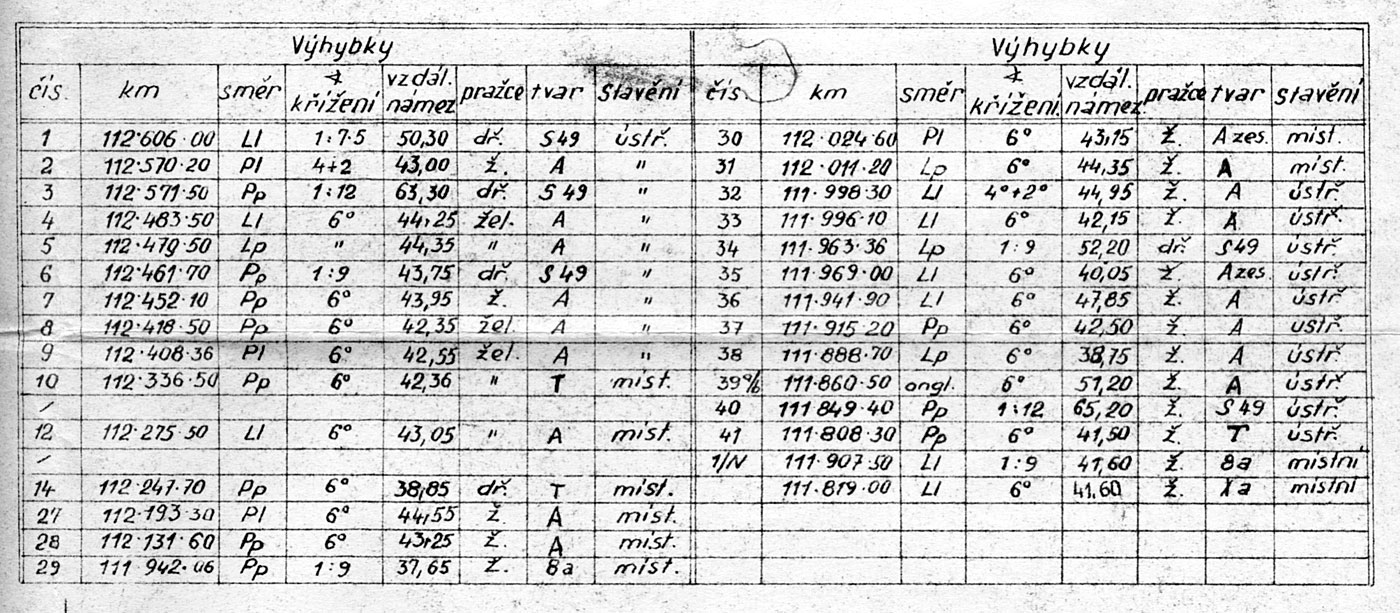 Výhybky
čís. km směr ∢ křížení vzdál. námez pražce tvar stavění
1 112·606·00 Ll 1:7·5 50,30 dř. S49 ústř.
2 112·570·20 Pl 4+2 43,00 ž. A "
3 112·571·50 Pp 1:12 63,30 dř. S49 "
4 112·483·50 Ll 6° 44,25 žel. A "
5 112·479·50 Lp " 44,35 " A "
6 112·461·70 Pp 1:9 43,75 dř. S49 "
7 112·452·10 Pp 6° 43,95 ž. A "
8 112·418·50 Pp 6° 42,35 žel. A "
9 112·408·36 Pl 6° 42,55 žel. A "
10 112·336·50 Pp 6° 42,36 " T míst.
/
12 112·275·50 Ll 6° 43,05 " A míst.
/
14 112·247·70 Pp 6° 38,85 dř. T míst.
27 112·193·30 Pl 6° 44,55 ž. A míst.
28 112·131·60 Pp 6° 43,25 ž. A míst.
29 111 942·06 Pp 1:9 37,65 ž. 8a míst.
Výhybky
čís. km směr ∢ křížení vzdál. námez pražce tvar stavění
30 112·024·60 Pl 6° 43,15 ž. A zes. míst.
31 112·011·20 Lp 6° 44,35 ž. A míst.
32 111·998·30 Ll 4°+2° 44,95 ž. A ústř.
33 111·996·10 Ll 6° 42,15 ž. A ústř.
34 111·963·36 Lp 1:9 52,20 dř. S49 ústř.
35 111·969·00 Ll 6° 40,05 ž. A zes. ústř.
36 111·941·90 Ll 6° 47,85 ž. A ústř.
37 111·915·20 Pp 6° 42,50 ž. A ústř.
38 111·888·70 Lp 6° 38,75 ž. A ústř.
111·860·50 angl. 6° 51,20 ž. A ústř.
40 111·849·40 Pp 1:12 65,20 ž. S49 ústř.
41 111·808·30 Pp 6° 41,50 ž. T ústř.
1/N 111·907·50 Ll 1:9 41,60 ž. 8a místní
111·819·00 Ll 6° 41,60 ž. místní